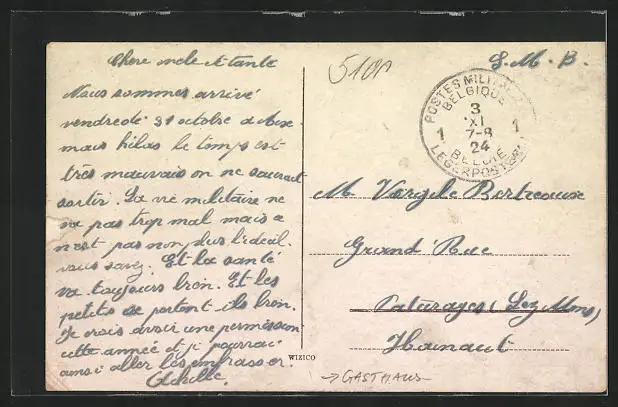 Chere oncle et tante
Nous sommes arrivé
vendredi 31 octobre a
mais hilas le temps est
très mauvais on ne saurait
sortir. La vie militaire ne
va pas trop mal mais ce
n'est pas non plus l'ideal.
vous savez. Et la santé
va toujours bron. Et les
petits se portent ils bron.
Je crois avoir une permission
cette année et je pourrai
ainsi aller les embrasser.
Achille.
WIZICO
5101
S.M.B.
POSTES MILITAIRES
BELGIQUE
3
XI
1 7-8 1
24
BELGIE
LEGERPOSTERIJ
M Virgile
Grand Rue
Paturages (Lez Mons)
Hainaut
→ GASTHAUS